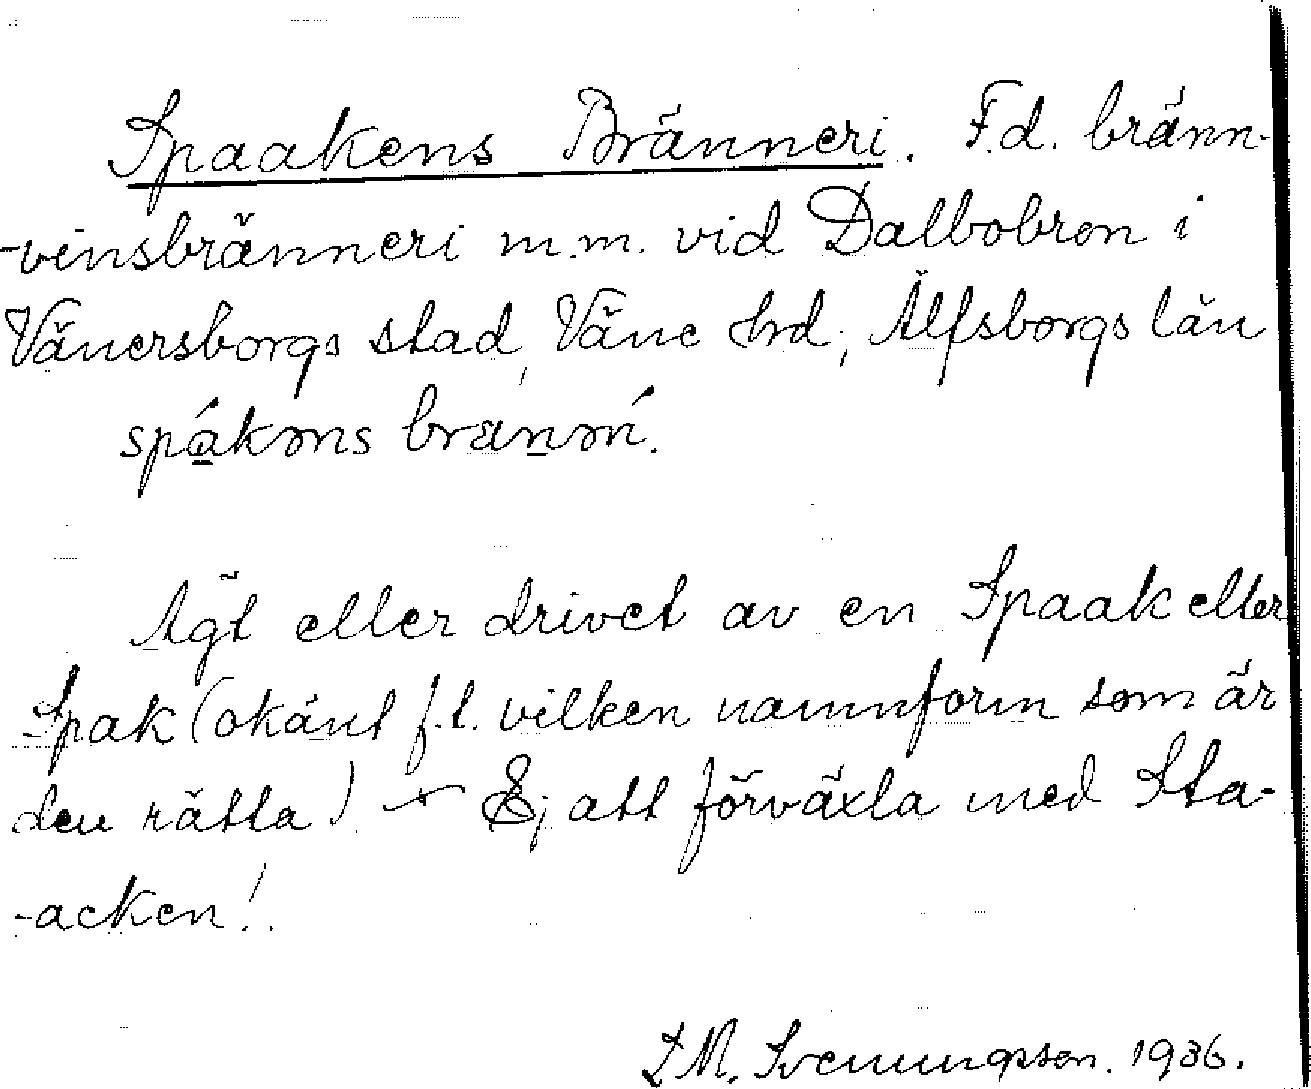 Spaakens Bränneri. F.d. bränn-
-vinsbränneri m.m. vid Dalbobron i
Vänersborgs stad, Väne hrd, Älfsborgs län
spákəns branəri.
Ägt eller drivet av en Spaak eller
Spak (okänt f.t. vilken namnform som är
den rätta) — Ej att förväxla med Sta-
-acken!
L M. Svenungsson. 1936.